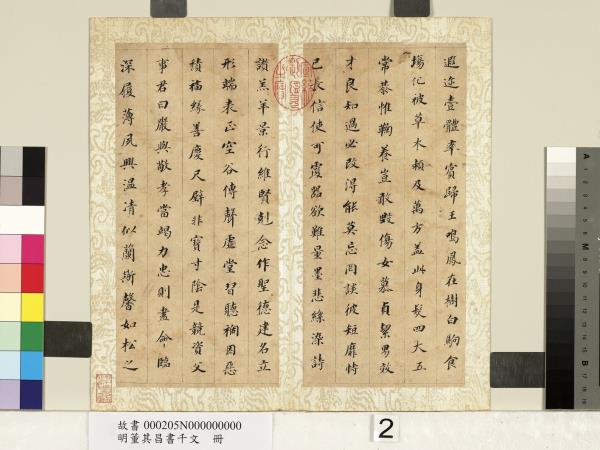 遐迩壹體率賓歸王鳴鳳在樹白駒食
場化被草木賴及萬方蓋此身髮四大五
常恭惟鞠養豈敢毀傷女慕貞絜男效
才良知過必改得能莫忘罔談彼短靡恃
己長信使可覆器欲難量墨悲絲染詩
讚羔羊景行維賢剋念作聖德建名立
形端表正空谷傳聲虛堂習聽禍因惡
積福緣善慶尺璧非寶寸陰是競資父
事君曰嚴與敬孝當竭力忠則盡命臨
深履薄夙興溫凊似蘭斯馨如松之
故書 000205N000000000
明董其昌書千文 冊
2